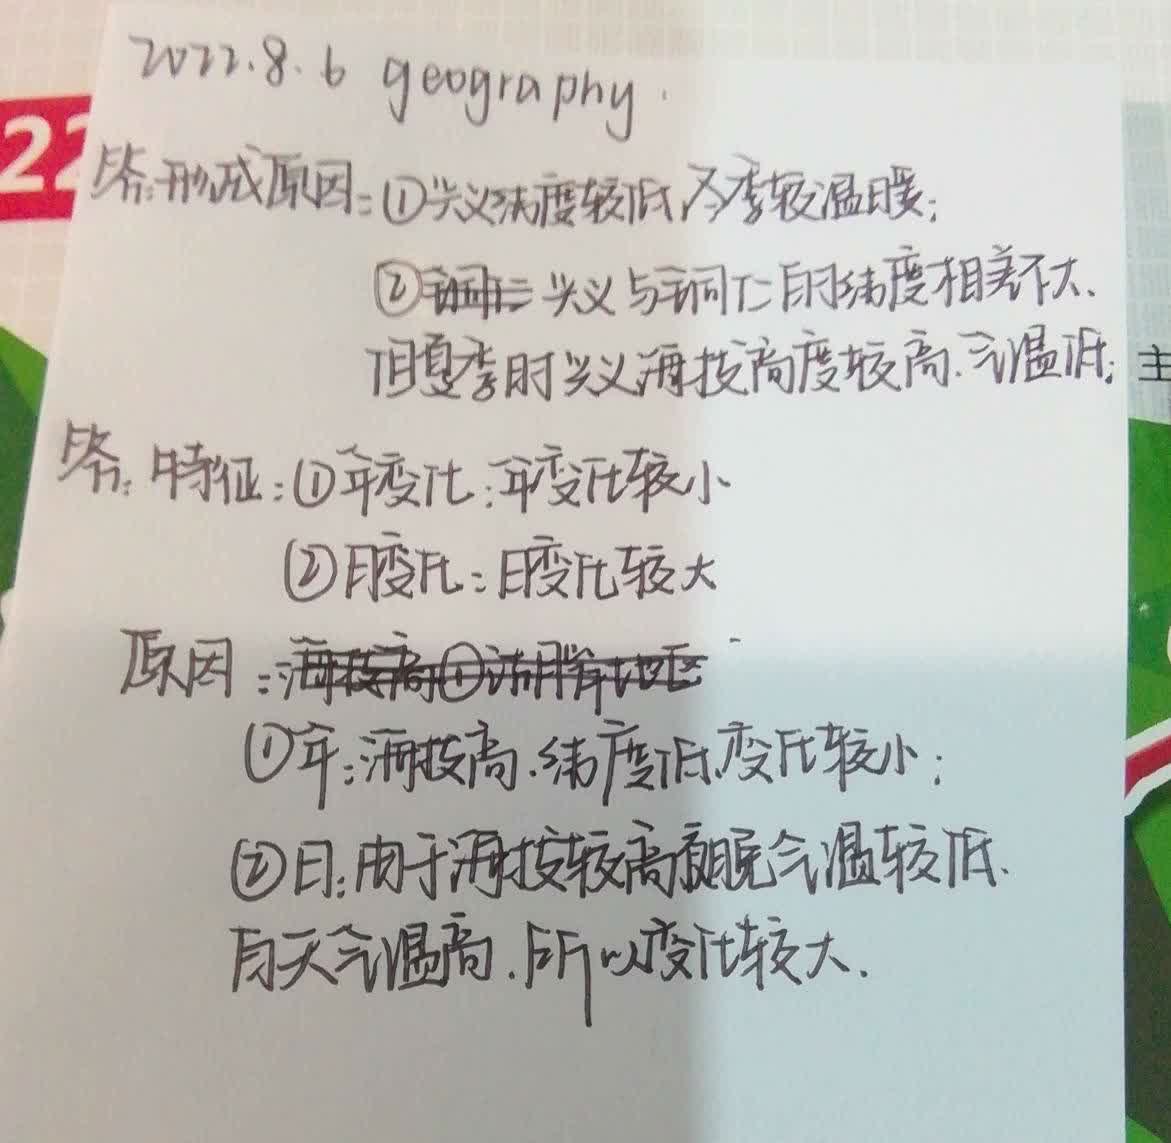 2022.8.6 geography.
22
答:形成原因:①兴义纬度较低,冬季较温暖;
② 兴义与铜仁的纬度相差不大、
但夏季时兴义海拔高度较高.气温低;
主
答:特征:①年变化:年变化较小
②日变化:日变化较大
原因:
①年:海拔高.纬度低.变化较小;
②日:由于海拔较高夜晚气温较低.
白天气温高.所以变化较大.